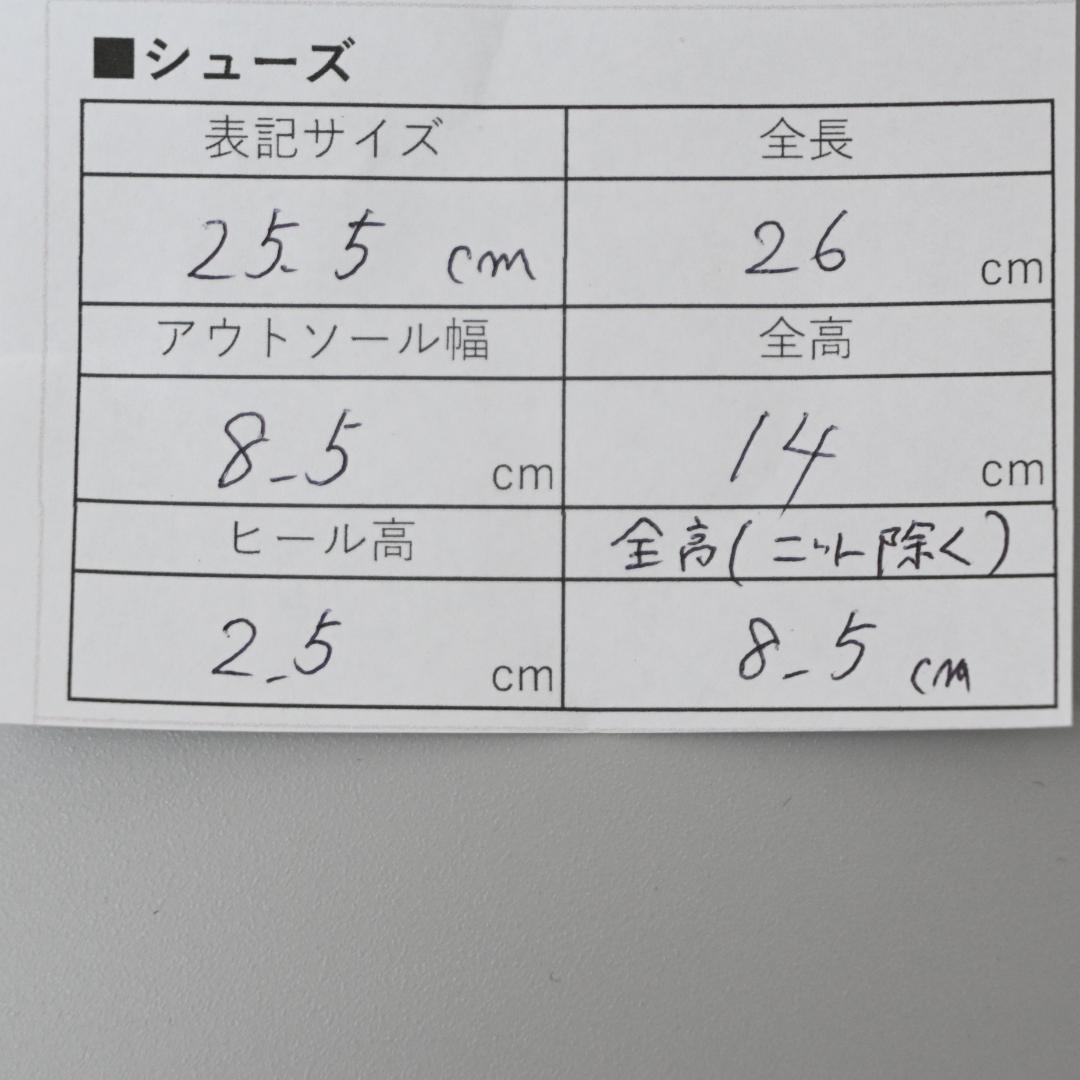 ■シューズ
表記サイズ 全長
25.5 cm 26 cm
アウトソール幅 全高
8.5 cm 14 cm
ヒール高 全高(ニット除く)
2.5 cm 8.5 cm